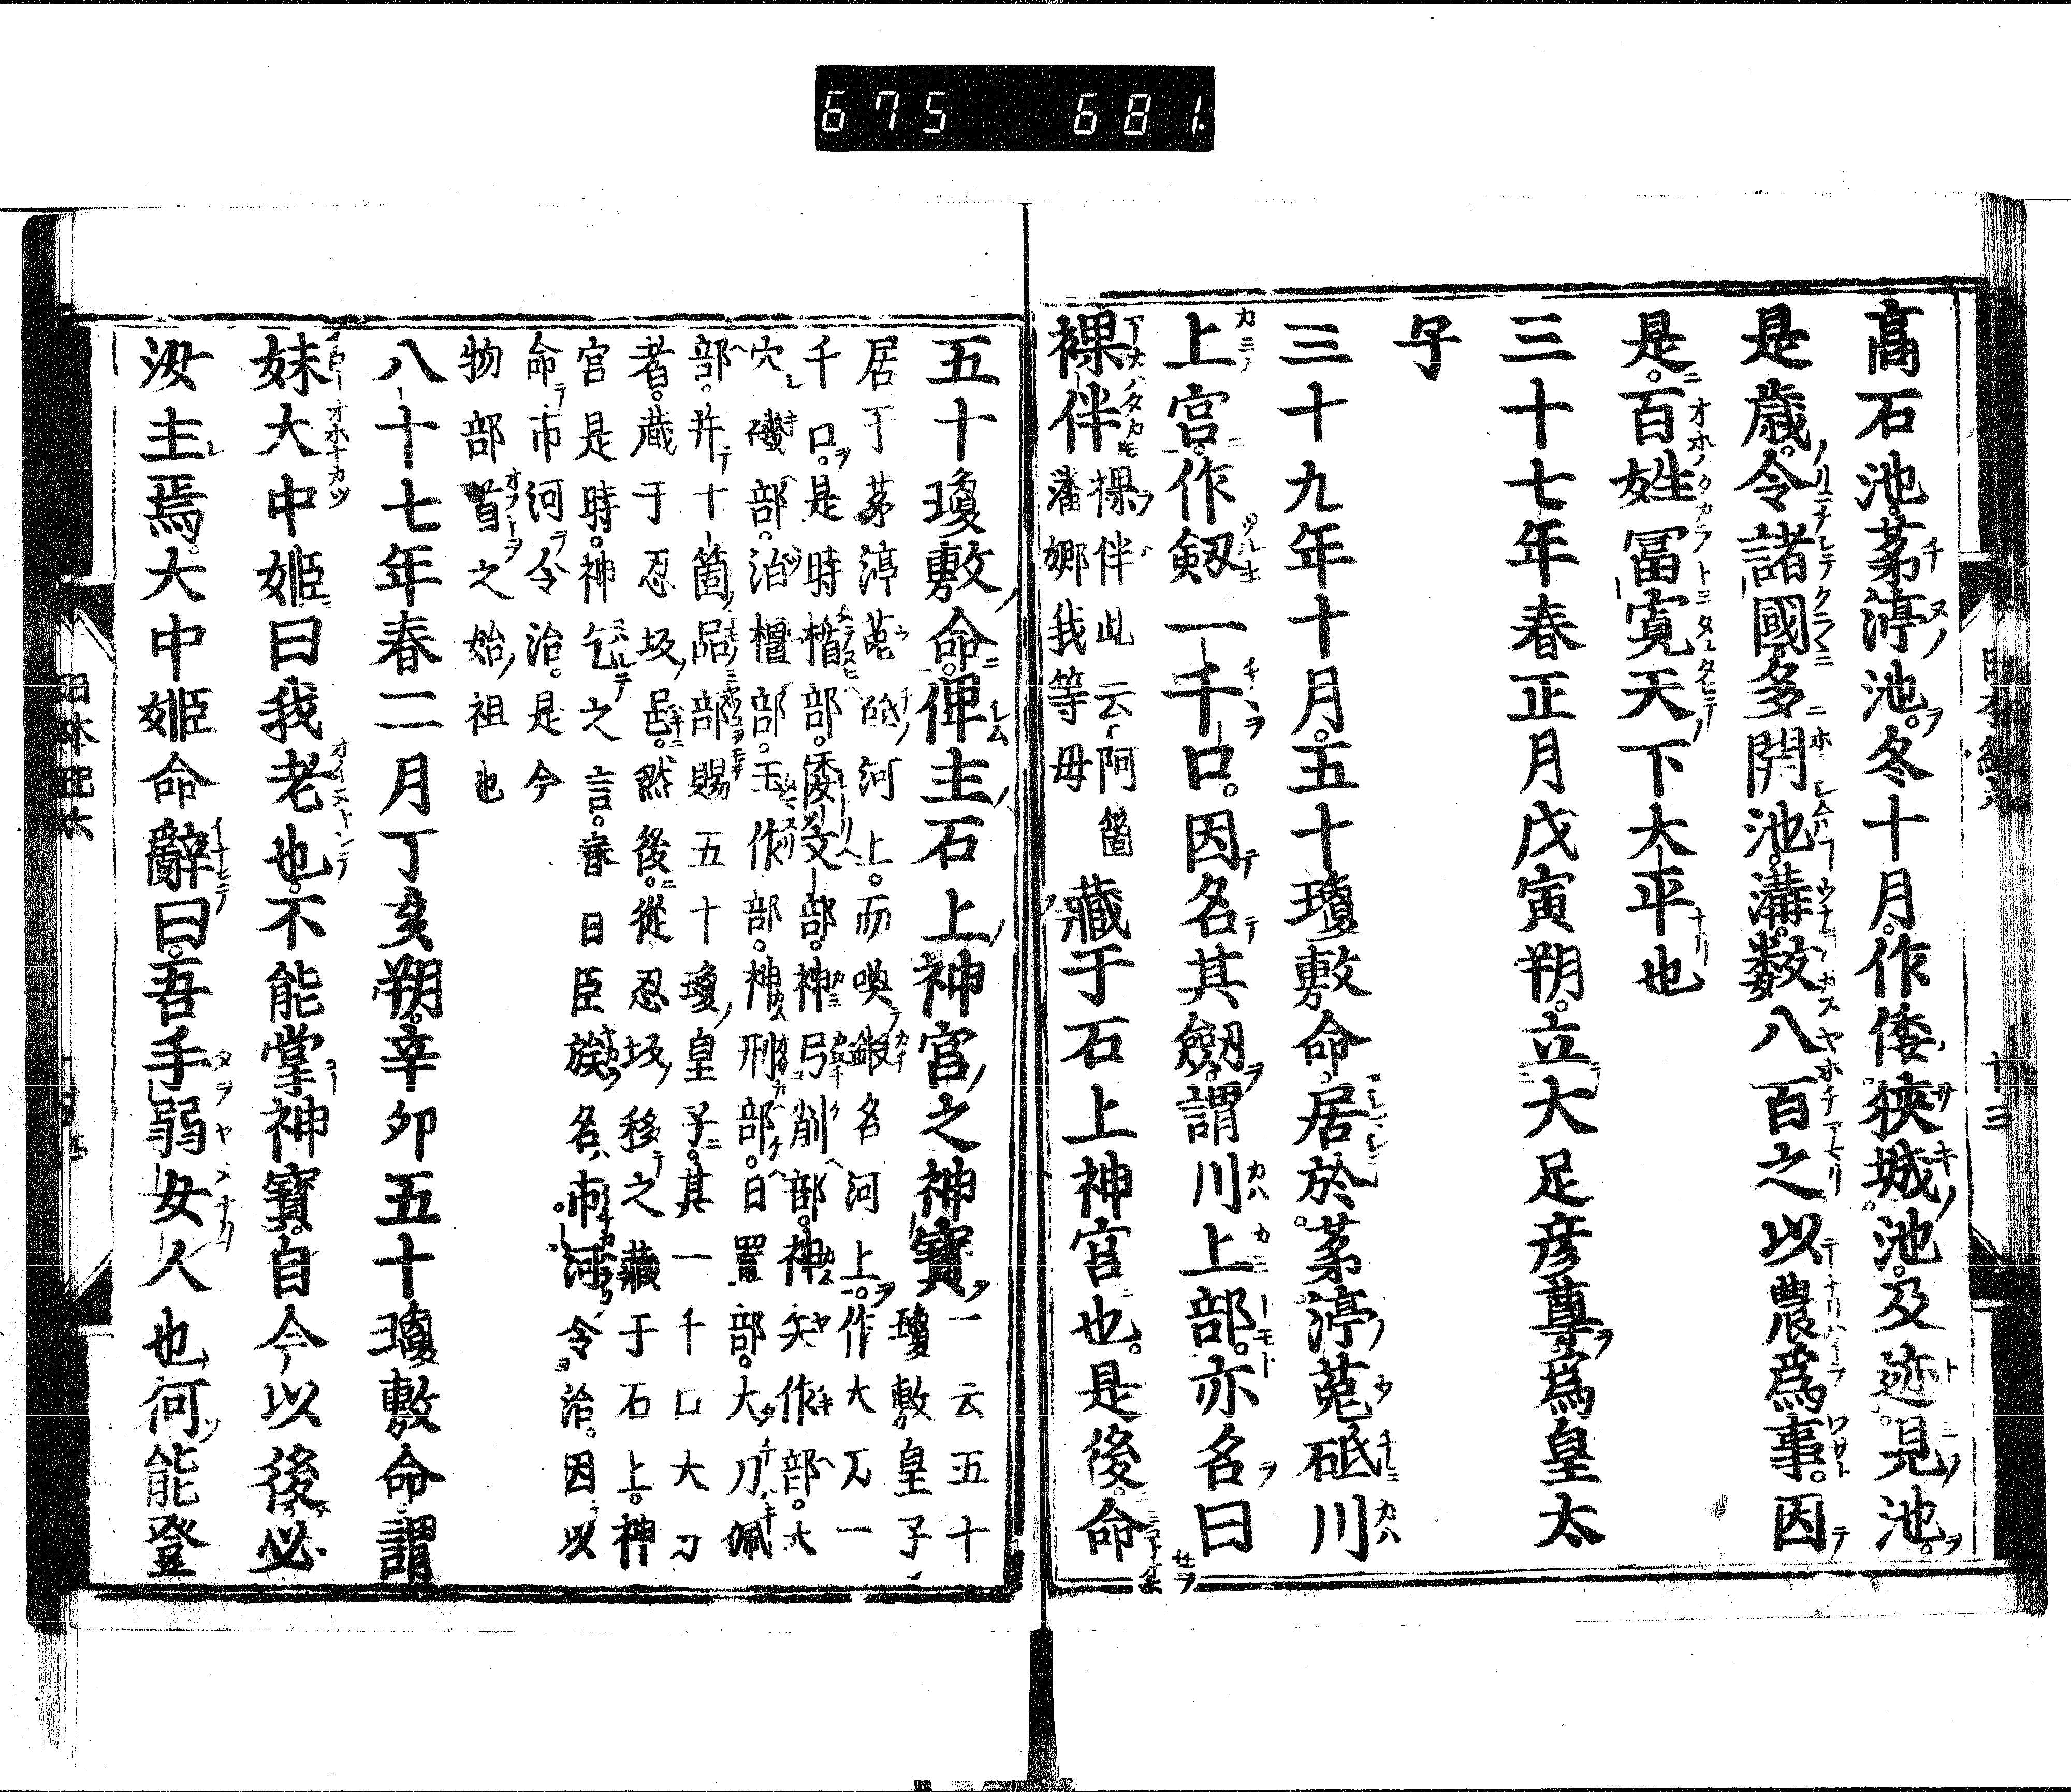 675 681
高石池茅渟池冬十月作倭狹城池及迹見池
是歳令諸國多開池溝数八百之以農爲事因
是百姓冨寛天下大平也
三十七年春正月戊寅朔立大足彦尊爲皇太
子
三十九年十月五十瓊敷命居於茅渟菟砥川
上宮作剱一千口因名其劔謂川上部亦名曰
裸伴裸伴此云阿箇
潘娜我等母藏于石上神宮也是後命
五十瓊敷命俾主石上神宮之神寶一云五十
瓊敷皇子
居于茅渟菟砥河上而喚鍛名河上作大刀一
千口是時楯部倭文部神弓削部神矢作部大
穴磯部泊橿部玉作部神刑部日置部大刀佩
部并十箇品部賜五十瓊皇子其一千口大刀
者蔵于忍坂邑然後從忍坂移之藏于石上神
宮是時神乞之言春日臣族名市河令治因以
命市河令治是今
物部首之始祖也
八十七年春二月丁亥朔辛卯五十瓊敷命謂
妹大中姫曰我老也不能掌神寶自今以後必
汝主焉大中姫命辭曰吾手弱女人也何能登